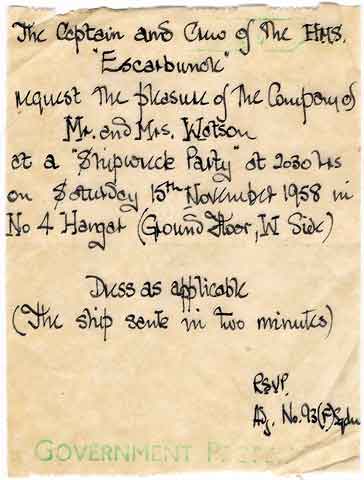 The Captain and Crew of The HMS.
"Escarbunok"
request The pleasure of The Company of
Mr. and Mrs. Watson
at a "Shipwreck Party" at 2030 hrs
on Saturday 15th November 1958 in
No 4 Hangar (Ground Floor, W Side)
Dress as applicable
(The ship sank in two minutes)
RSVP.
Adj. No. 93(F) Sqdn
GOVERNMENT